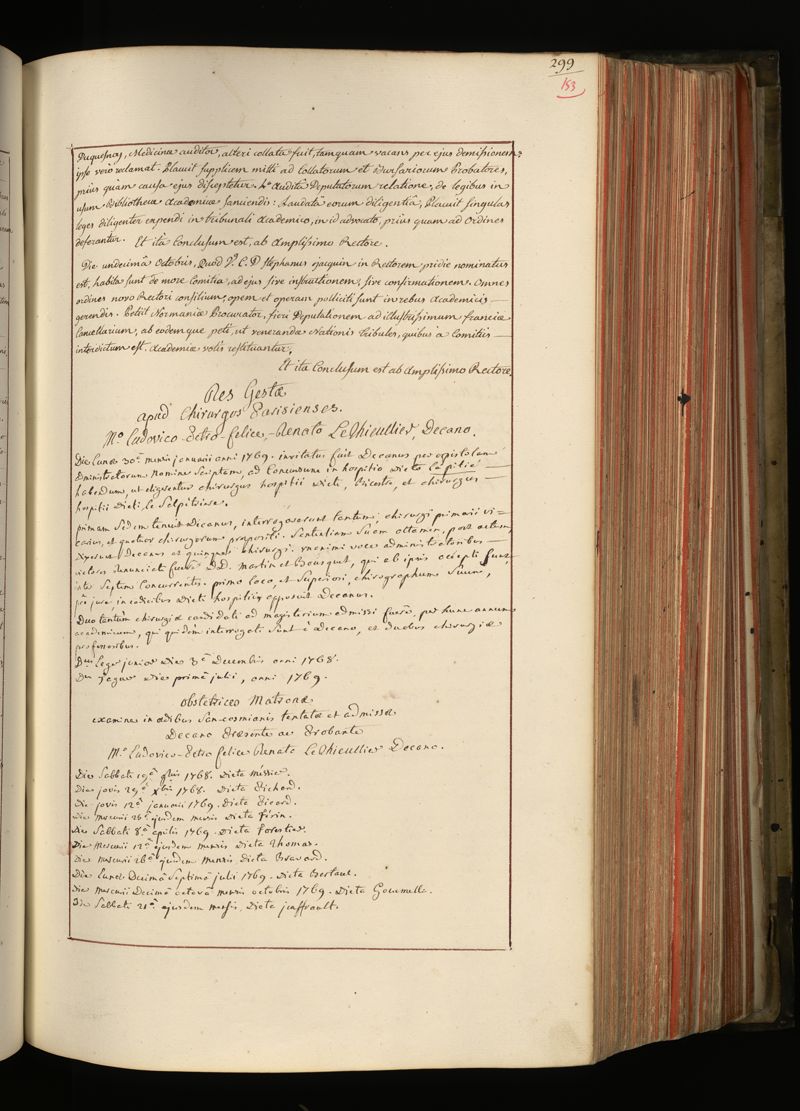 299
153
Duquesnoy, Medicinæ auditor, alteri collata fuit, tamquam vacans per ejus demissionem:
ipse vero reclamat. Placuit supplicem mitti ad Collatorum et Bursariorum Probatores,
prius quam causa ejus disceptetur. 4.° Audita Deputatorum relatione, de legibus in
usum Bibliothecæ Academicæ sanciendis: Laudata eorum diligentia, Placuit singulas
leges diligenter expendi in tribunali academico, in id advocato, prius quam ad Ordines
deferantur. Et ità Conclusum est, ab Amplissimo Rectore.
Die undecimâ Octobris, Quod V. C. D Stephanus Jacquin in Rectorem pridie nominatus
est, habita sunt de more Comitia, ad ejus sive instructionem, sive confirmationem. Omnes
ordines novo Rectori consilium, opem et operam polliciti sunt in rebus Academicis
gerendis. Petiit Normaniæ Procurator, fieri Deputationem ad illustrissimum franciæ
Cancellarium, ab eodemque peti, ut venerandæ Nationis Tribules, quibus a Comitiis
interdictum est, Academiæ votis restituantur.
Et ita Conclusum est ab Amplissimo Rectore.
Res Gestæ
apud Chirurgos Parisienses.
M.° Ludovico-Petro-Felice-Renato Le Thieullier, Decano.
Die Lunæ 30.ª mensis januarii anni 1769. invitatus fuit Decanus per epistolam
administratorum nomine scriptam, ad Concursum in hospitio dicto la pitié
habendum, ut eligerentur chirurgus hospitii dicti, Bicestre, et chirurgus
hospitii dicti, la Salpitriere.
primam sedem tenuit Decanus, interrogaverunt tantum chirurgi primarii
et quatuor chirurgorum præpositi. Sententiam suam attamen, post actum,
Decanus et quinque chirurgi. unanimi voce administratoribus
victores renunciati fuere D.D. Martin et Bousquet, qui ab ipsis accepti sunt,
inter septem Concurrentes. primo loco, et superiori, chirographum suum,
pro jure in codicibus dicti hospitii apposuit Decanus.
Duo tantùm chirurgiæ candidati ad magisterium admissi fuere, per hunc annum
academicum, qui quidem interrogati sunt à Decano, et duobus chirurgiæ
professoribus.
Dnus leger junior die 3.ª Decembris anni 1768.
Dnus die primâ julii, anni 1769.
obstetrices Matronæ
examine in ædibus San-cosmianis tentatæ et admissæ
Decano Præsente ac Probante
M.° Ludovico-Petro felice Renato Le Thieullier Decano.
Die Sabbati 19.ª 9bris 1768. Dicta
Die jovis 29.ª Xbris 1768. Dicta Richard.
Die jovis 12.ª januarii 1769. Dicta Picard.
Die mercurii 25.ª ejusdem mensis Dicta
Die Sabbati 8.ª aprilis 1769. Dicta Forestier.
Die mercurii 12.ª ejusdem mensis Dicta Thomas.
Die mercurii 26.ª ejusdem Mensis, Dicta Bravard.
Die Lunæ Decimâ Septimâ julii 1769. Dicta Bertaut.
Die mercurii Decimâ octavâ mensis octobris 1769. Dicta Goumelle.
Die Sabbati 21.ª ejusdem mensis, Dicta jauffrault.